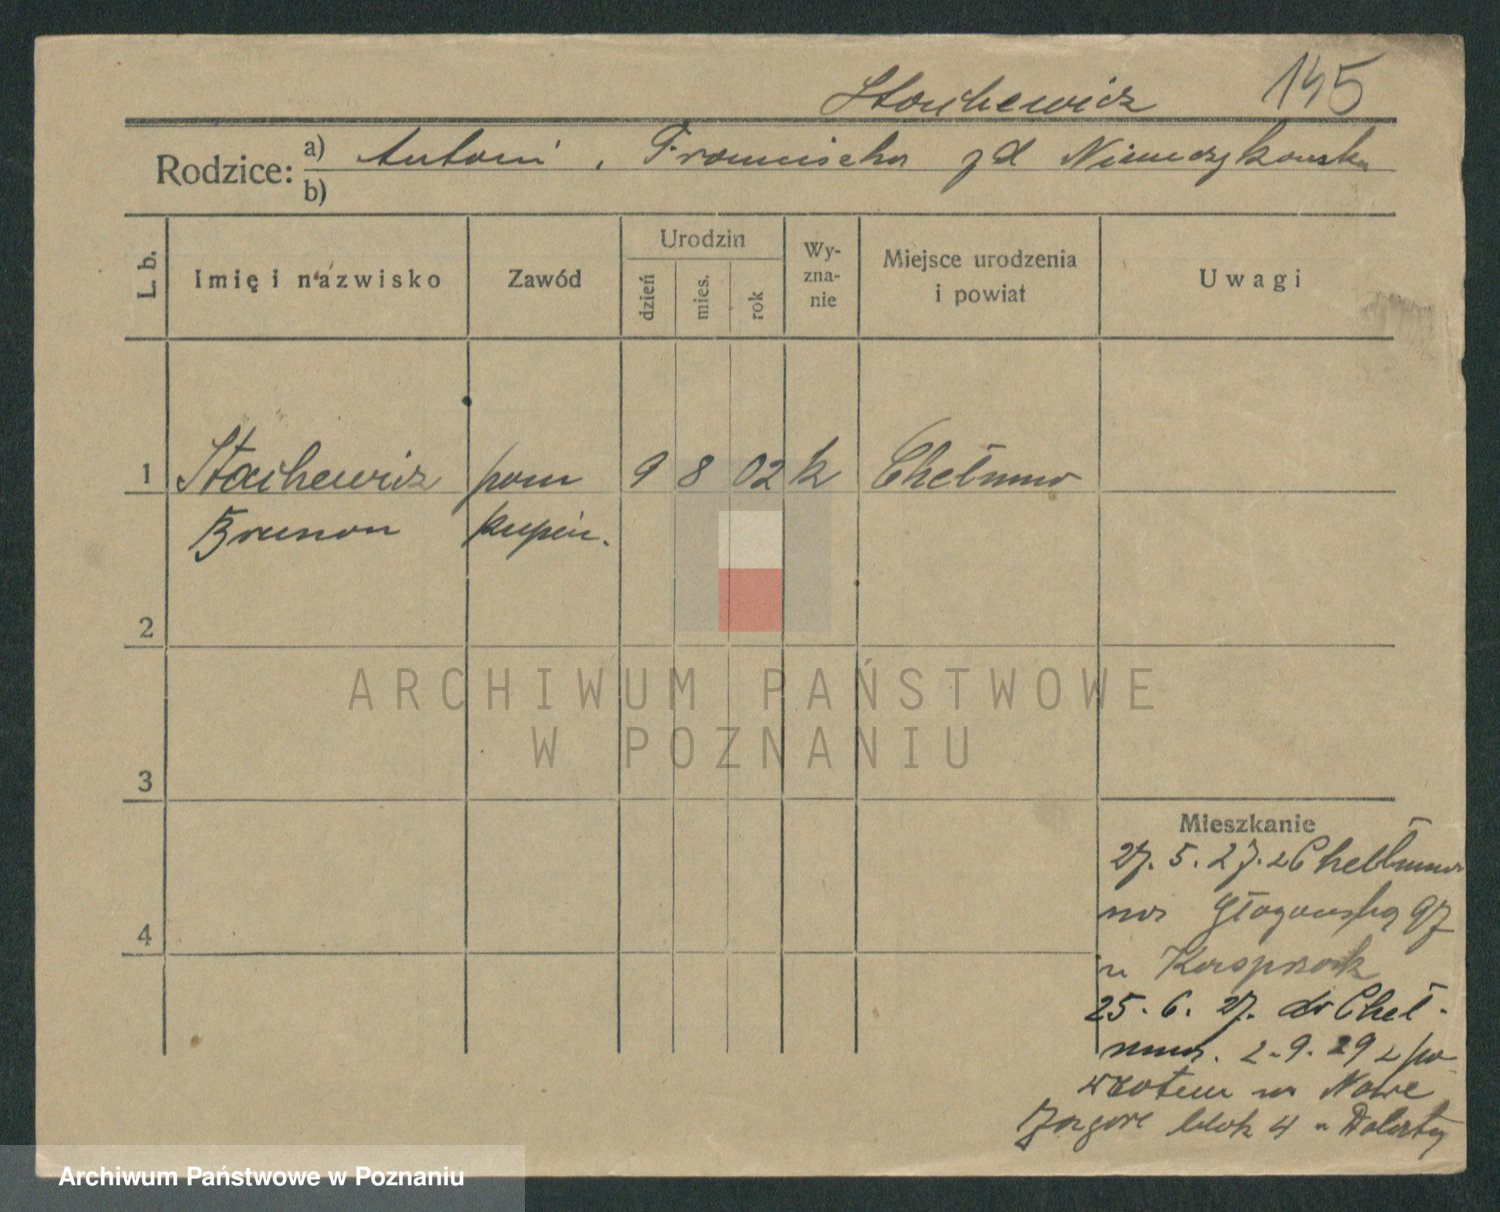 Stachewicz 145
Rodzice: a) Antoni, Franciszka zd Niemczykowska
b)
L. b. Imię i nazwisko Zawód Urodzin dzień mies. rok Wyznanie Miejsce urodzenia i powiat Uwagi
1 Stachewicz pom 9 8 02 k Chełmno
Brunon kupiec.
2
ARCHIWUM PAŃSTWOWE
W POZNANIU
3
Mieszkanie
27. 5. 27. z Chełmna
na Głogowską 97
4
u Kasprzak
25. 6. 27. do Cheł-
mna. 2.9.29 z po-
wrotem na Nowe
Zagóre blok 4 u
Archiwum Państwowe w Poznaniu